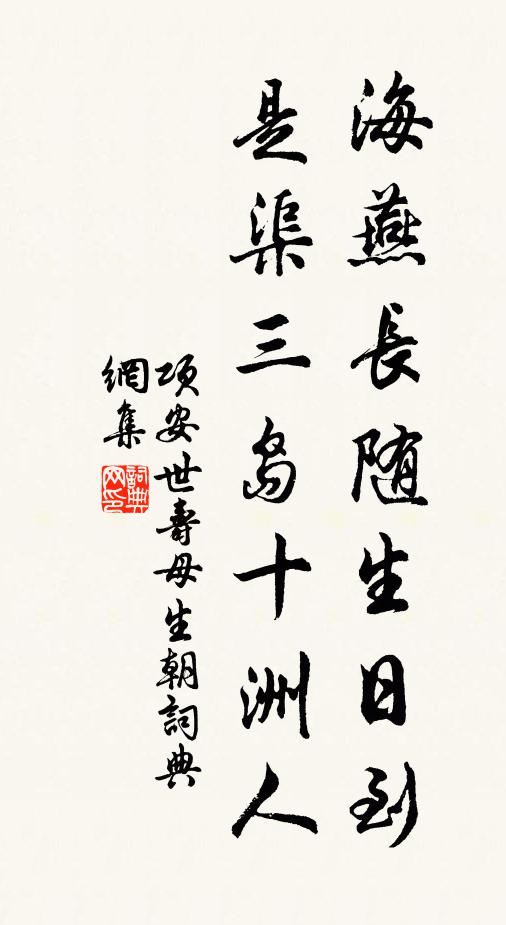 海燕長随生日到
是渠三島十洲人
項安世壽母生朝詞典
網集
詞典網印